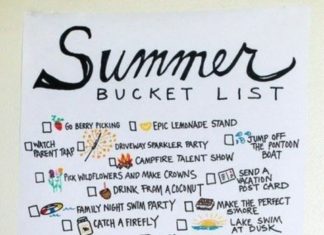 Summer
BUCKET LIST
GO BERRY PICKING
EPIC LEMONADE STAND
WATCH PARENT TRAP
DRIVEWAY SPARKLER PARTY
JUMP OFF THE PONTOON BOAT
CAMPFIRE TALENT SHOW
PICK WILDFLOWERS AND MAKE CROWNS
SEND A VACATION POST CARD
DRINK FROM A COCONUT
FAMILY NIGHT SWIM PARTY
MAKE THE PERFECT S'MORE
CATCH A FIREFLY
LAKE SWIM AT DUSK